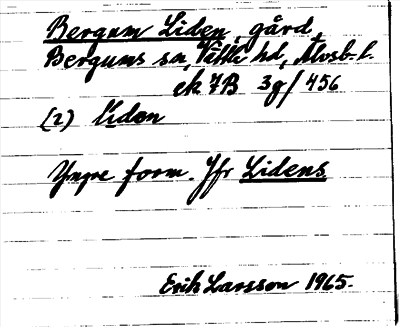 Bergum Liden, gård,
Bergums sn, Vättle hd, Älvsb. l.
ek 7B 3g/456
(2) Liden
Yngre form. Jfr Lidens
Erik Larsson 1965.